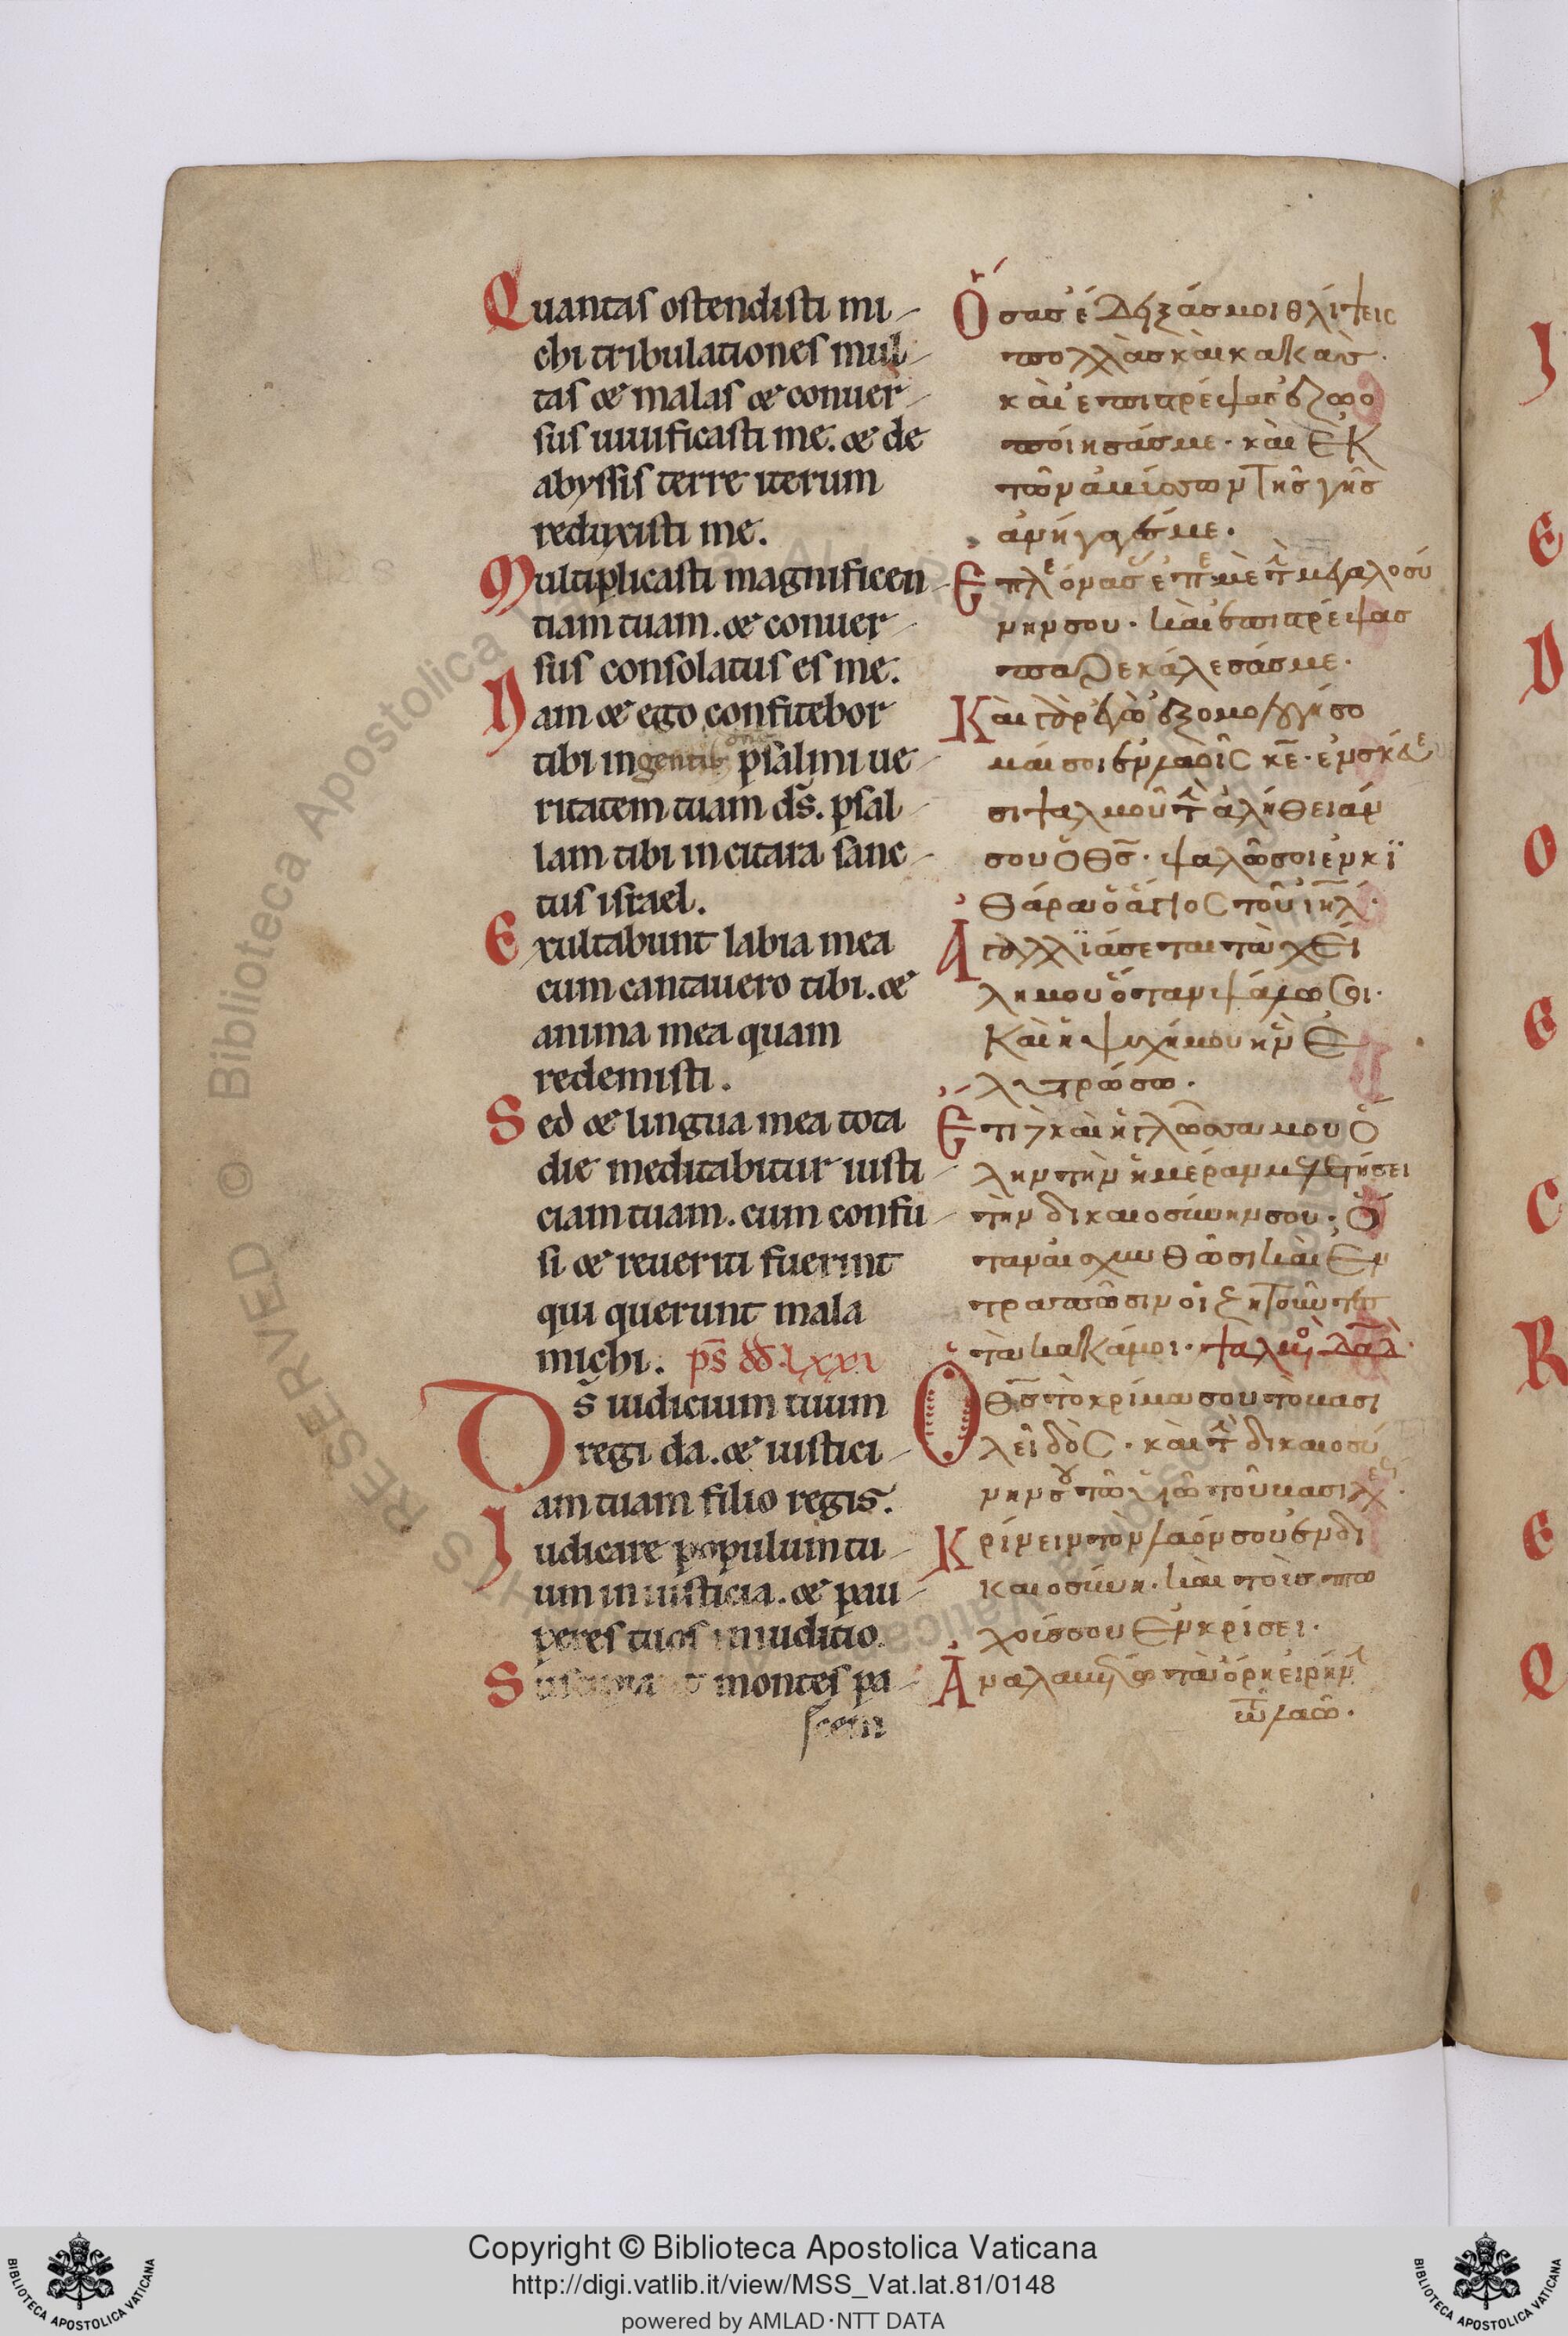 Quantas ostendisti mi-
chi tribulationes mul-
tas & malas & conuer-
sus uiuificasti me. & de
abyssis terre iterum
reduxisti me.
Multiplicasti magnificen-
tiam tuam. & conuer-
sus consolatus es me.
Nam & ego confitebor
tibi in gentib; psalmi ue-
ritatem tuam ds̄. psal-
lam tibi in citara sanc-
tus israel.
Exultabunt labia mea
cum cantauero tibi. &
anima mea quam
redemisti.
Sed & lingua mea tota
die meditabitur iusti-
ciam tuam. cum confu-
si & reueriti fuerint
qui querunt mala
michi. ps̄ dd̄ lxxi
Ds̄ iudicium tuum
regi da. & iustici-
am tuam filio regis.
Iudicare populum tu-
um in iusticia. & pau-
peres tuos in iuditio
montes pa-
cem
Ὅσας ἐδηξάς μοι θλίψεις
πολλὰς κὰι κακὰς.
κὰι ἐπιτρέψας ἐζωο
ποίησάς με. κὰι ἐκ
τῆς γῆς
ἀνήγαγές με.
νην σου. κὰι ἐπιτρέψας
παρεκάλεσάς με.
Κὰι
σι ψαλμοῦ τ̂ ἀλήθειαν
σου ὁ θς̄. ψαλῶ σοι ἐν κϊ
θάρα ὁ ἅγιος τοῦ ιηλ̄.
Ἀγαλλϊάσεται τὰ χεί
λη μου ὅταν ψάλω σοι.
Κὰι ἡ ψυχή μου ἣν ἐ
λυτρώσω.
Ἔτι δὲ κὰι ἡ γλῶσσα μου ὅ
λην τὴν ἡμέραν μελετήσει
τὴν δικαιοσύνην σου. ὅ
ταν ἀισχυνθῶσι κὰι ἐν
τραπῶσιν ὁι ζητοῦντες
τὰ κακά μοι. ψαλμὸ δαδ̄
Ὁ θς̄ τὸ κρίμα σου τὸ βασι
λεῖ δὸς. κὰι τ̂ δικαιοσύ
νην σου τῶ υἱῶ τοῦ βασιλέ.
Κρίνειν τὸν λαόν σου ἐν δι
καιοσύνη. κὰι τοὺς πτω
χούς σου ἐν κρίσει.
Ἀναλαβέτω τὰ ὄρη εἰρήν
τῶ λαῶ.
Copyright © Biblioteca Apostolica Vaticana
http://digi.vatlib.it/view/MSS_Vat.lat.81/0148
powered by AMLAD·NTT DATA